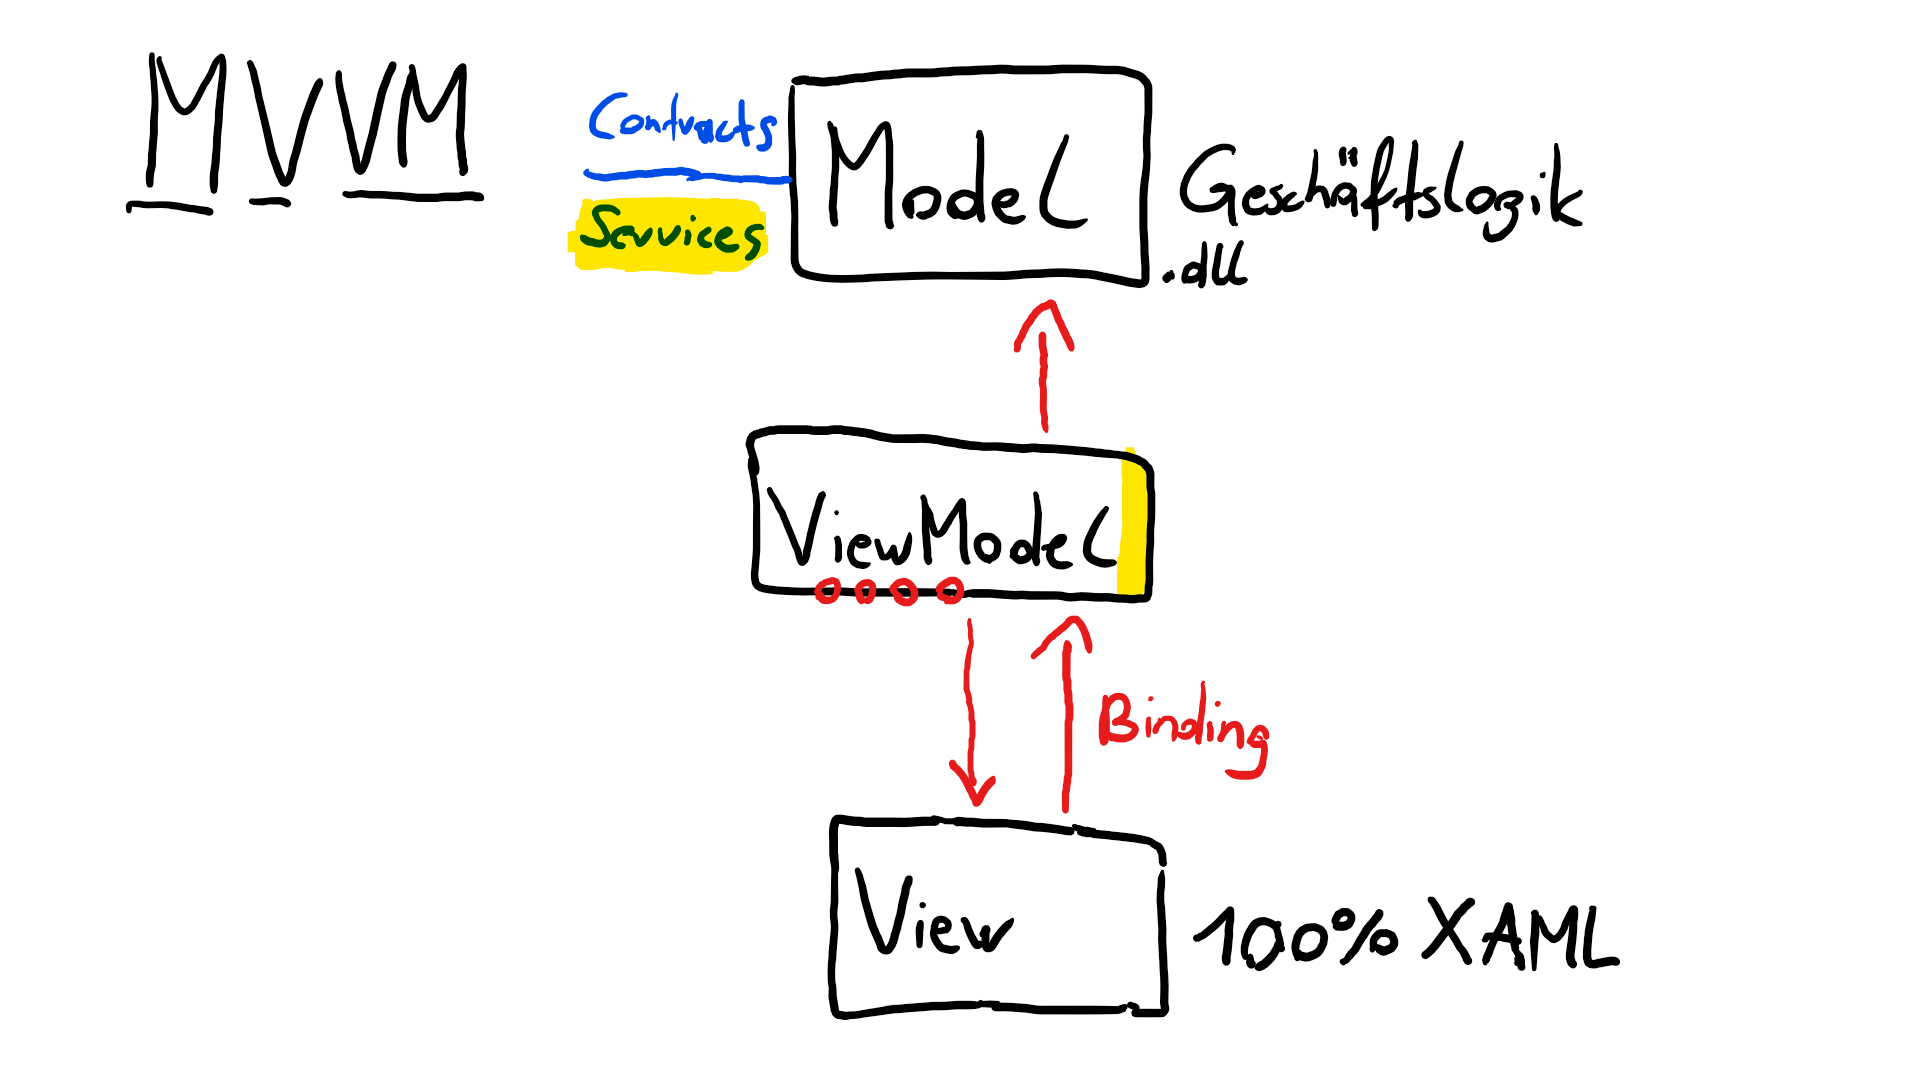 MVVM
Contracts
Services
Model
Geschäftslogik
.dll
ViewModel
Binding
View
100% XAML